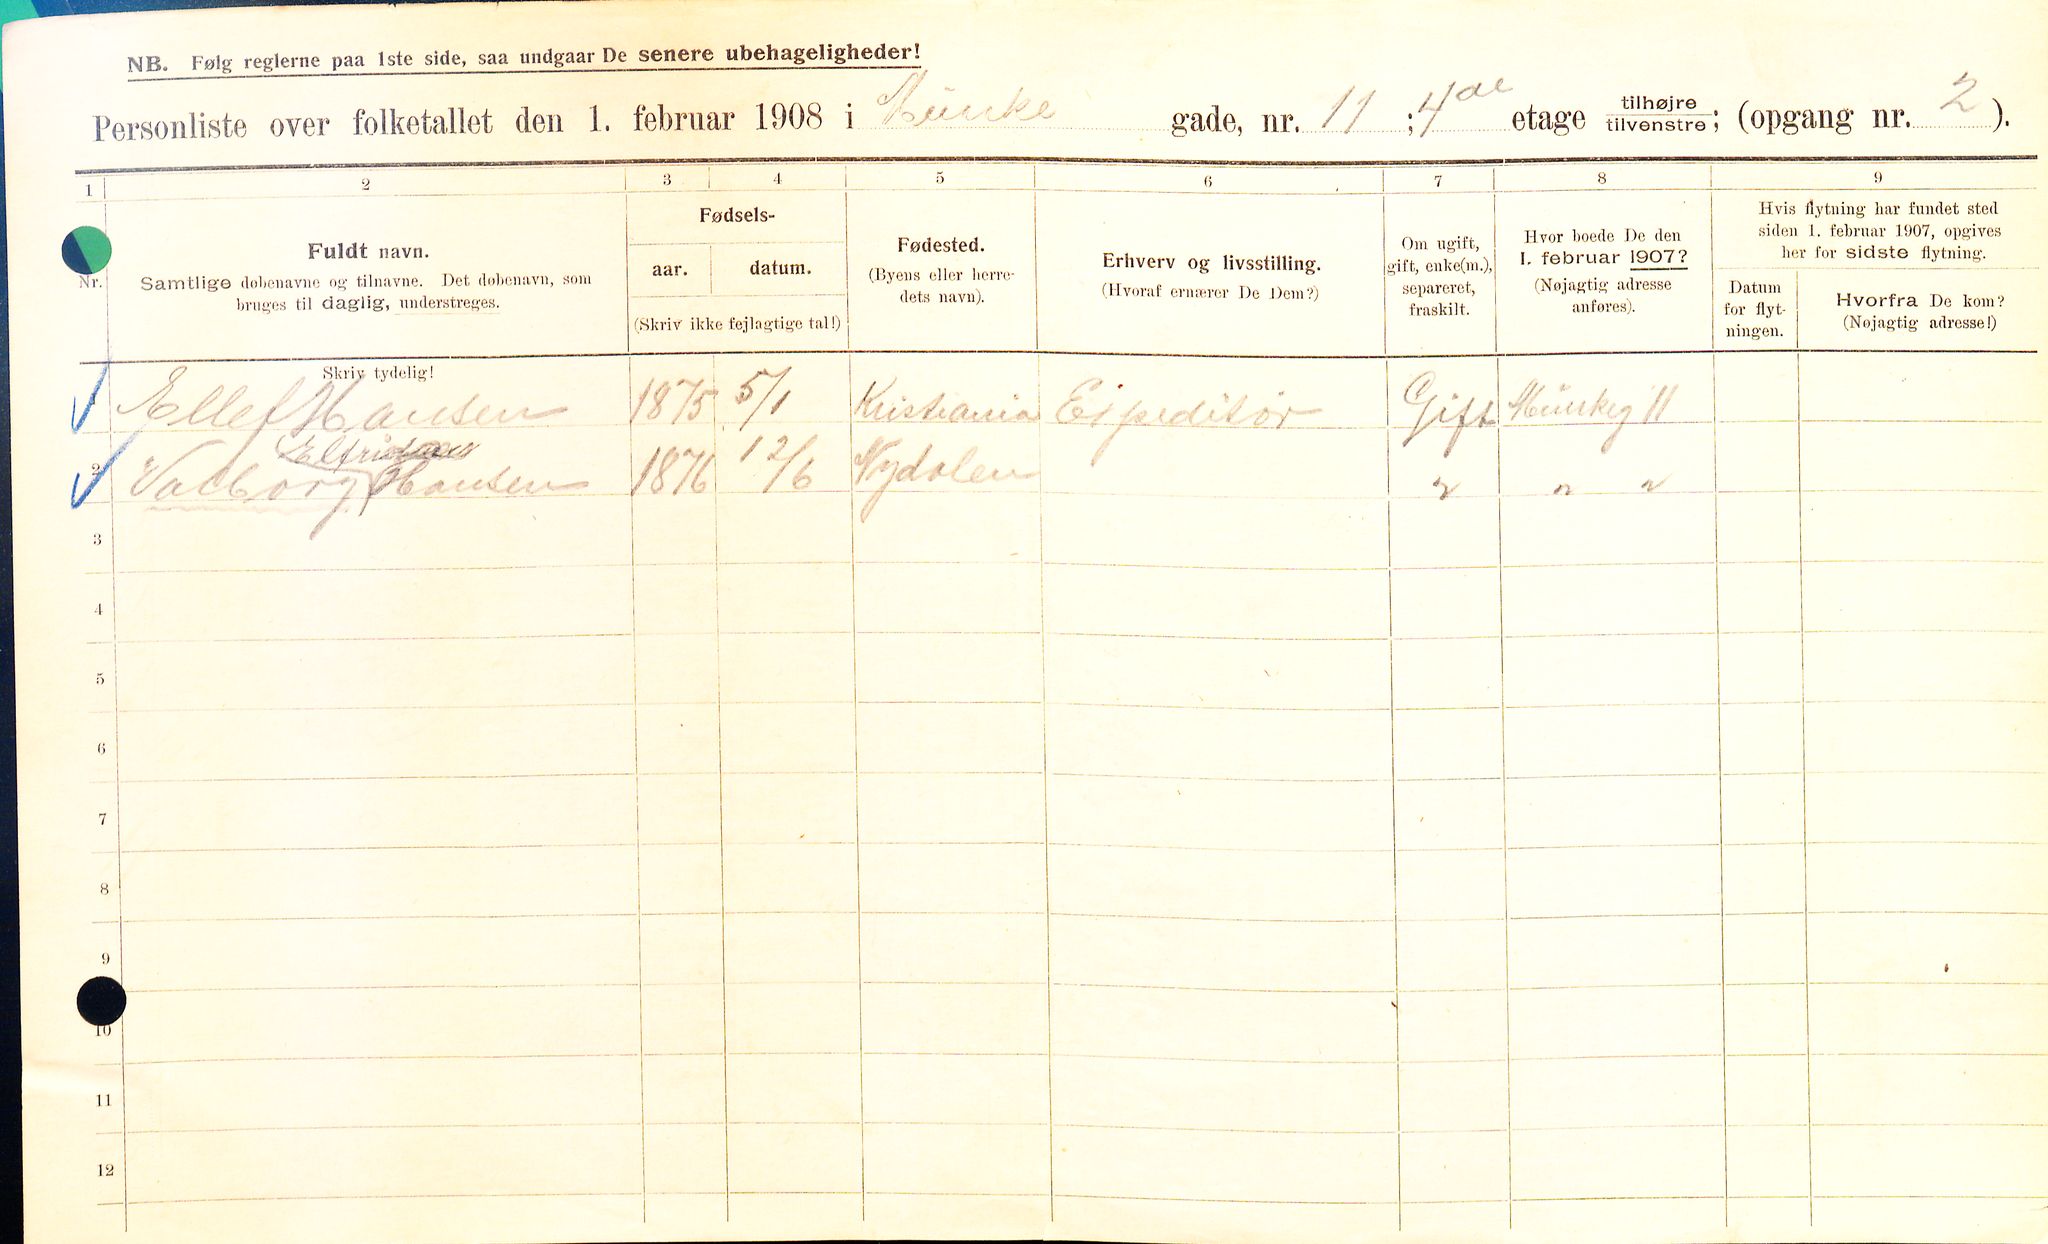 NB. Følg reglerne paa 1ste side, saa undgaar De senere ubehageligheder!
Personliste over folketallet den 1. februar 1908 i Münke gade, nr. 11 ; 4de etage tilhøjre tilvenstre; (opgang nr. 2 ).
1 2 3 4 5 6 7 8 9
Nr.
Fuldt navn.
Samtlige døbenavne og tilnavne. Det døbenavn, som
bruges til daglig, understreges.
Fødsels-
aar. datum.
(Skriv ikke fejlagtige tal!)
Fødested.
(Byens eller herre-
dets navn).
Erhverv og livsstilling.
(Hvoraf ernærer De Dem?)
Om ugift,
gift, enke(m.),
separeret,
fraskilt.
Hvor boede De den
1. februar 1907?
(Nøjagtig adresse
anføres).
Hvis flytning har fundet sted
siden 1. februar 1907, opgives
her for sidste flytning.
Datum
for flyt-
ningen.
Hvorfra De kom?
(Nøjagtig adresse!)
Skriv tydelig!
Ellef Hansen 1875 5/1 Kristiania Expeditør Gift Münkeg 11
2 Valborg Hansen 1876 12/6 Nydalen " " "
3
4
5
6
7
8
9
10
11
12